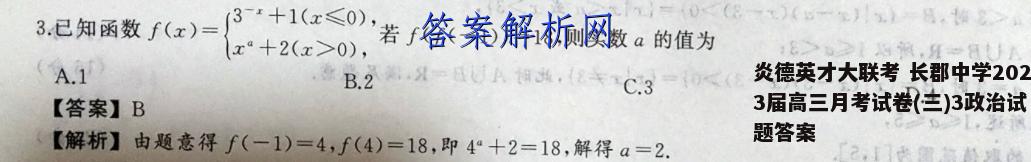 3.已知函数 f(x)={3^{-x}+1(x≤0), x^a+2(x>0), 若 f =18,则实数 a 的值为
答案解析网
A.1 B.2 C.3
【答案】B
【解析】由题意得 f(-1)=4,f(4)=18,即 4^a+2=18,解得 a=2.
炎德英才大联考 长郡中学202
3届高三月考试卷(三)3政治试
题答案